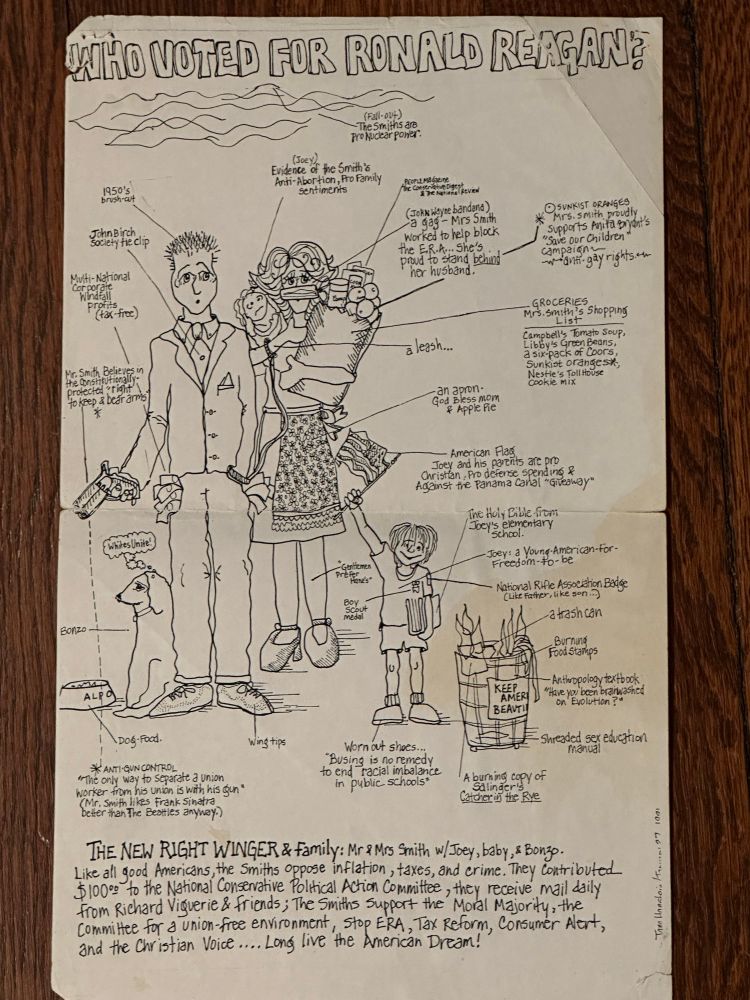 WHO VOTED FOR RONALD REAGAN?
(Fall-out)
The Smiths are
Pro Nuclear power.
(Joey)
Evidence of the Smith's
Anti-Abortion, Pro Family
sentiments
PEOPLE MAGAZINE
The Conservative Digest
& The National Review
1950's
brush-cut
(John Wayne bandana)
a gag - Mrs Smith
worked to help block
the E.R.A... She's
proud to stand behind
her husband.
SUNKIST ORANGES
* Mrs. Smith proudly
supports Anita Bryant's
"Save Our Children"
campaign
anti-gay rights.
John Birch
Society tie clip
Multi-National
Corporate
Windfall
profits
(tax-free)
GROCERIES
Mrs. Smith's Shopping
List
Campbell's Tomato Soup,
Libby's Green Beans,
a six-pack of Coors,
Sunkist oranges*,
Nestle's TollHouse
Cookie mix
a leash...
Mr. Smith Believes in
the Constitutionally-
protected "right
to keep & bear arms"
*
an apron-
God Bless mom
& Apple Pie
American Flag
Joey and his parents are pro
Christian, Pro defense spending &
Against the Panama Canal "Giveaway"
The Holy Bible from
Joey's elementary
school.
Whites Unite!
Joey: a Young-American-For-
Freedom-to-be
"Gentlemen
Prefer
Hanes"
National Rifle Association Badge
(Like Father, like son...)
Boy
Scout
medal
a trash can
Bonzo
Burning
Food Stamps
KEEP
AMERI
BEAUTI
Anthropology textbook
"Have you been brainwashed
on Evolution?"
ALPO
Shredded sex education
manual
Dog-Food.
Wing tips
Worn out shoes...
"Busing is no remedy
to end racial imbalance
in public schools"
A burning copy of
Salinger's
Catcher in the Rye
* ANTI-GUN CONTROL
"The only way to separate a union
worker from his union is with his gun"
(Mr. Smith likes Frank Sinatra
better than The Beatles anyway.)
THE NEW RIGHT WINGER & family: Mr & Mrs Smith w/Joey, baby, & Bonzo.
Like all good Americans, the Smiths oppose inflation, taxes, and crime. They contributed
$100.00 to the National Conservative Political Action Committee, they receive mail daily
from Richard Viguerie & friends; The Smiths Support the Moral Majority, the
Committee for a union-free environment, Stop ERA, Tax Reform, Consumer Alert,
and the Christian Voice .... Long live the American Dream!